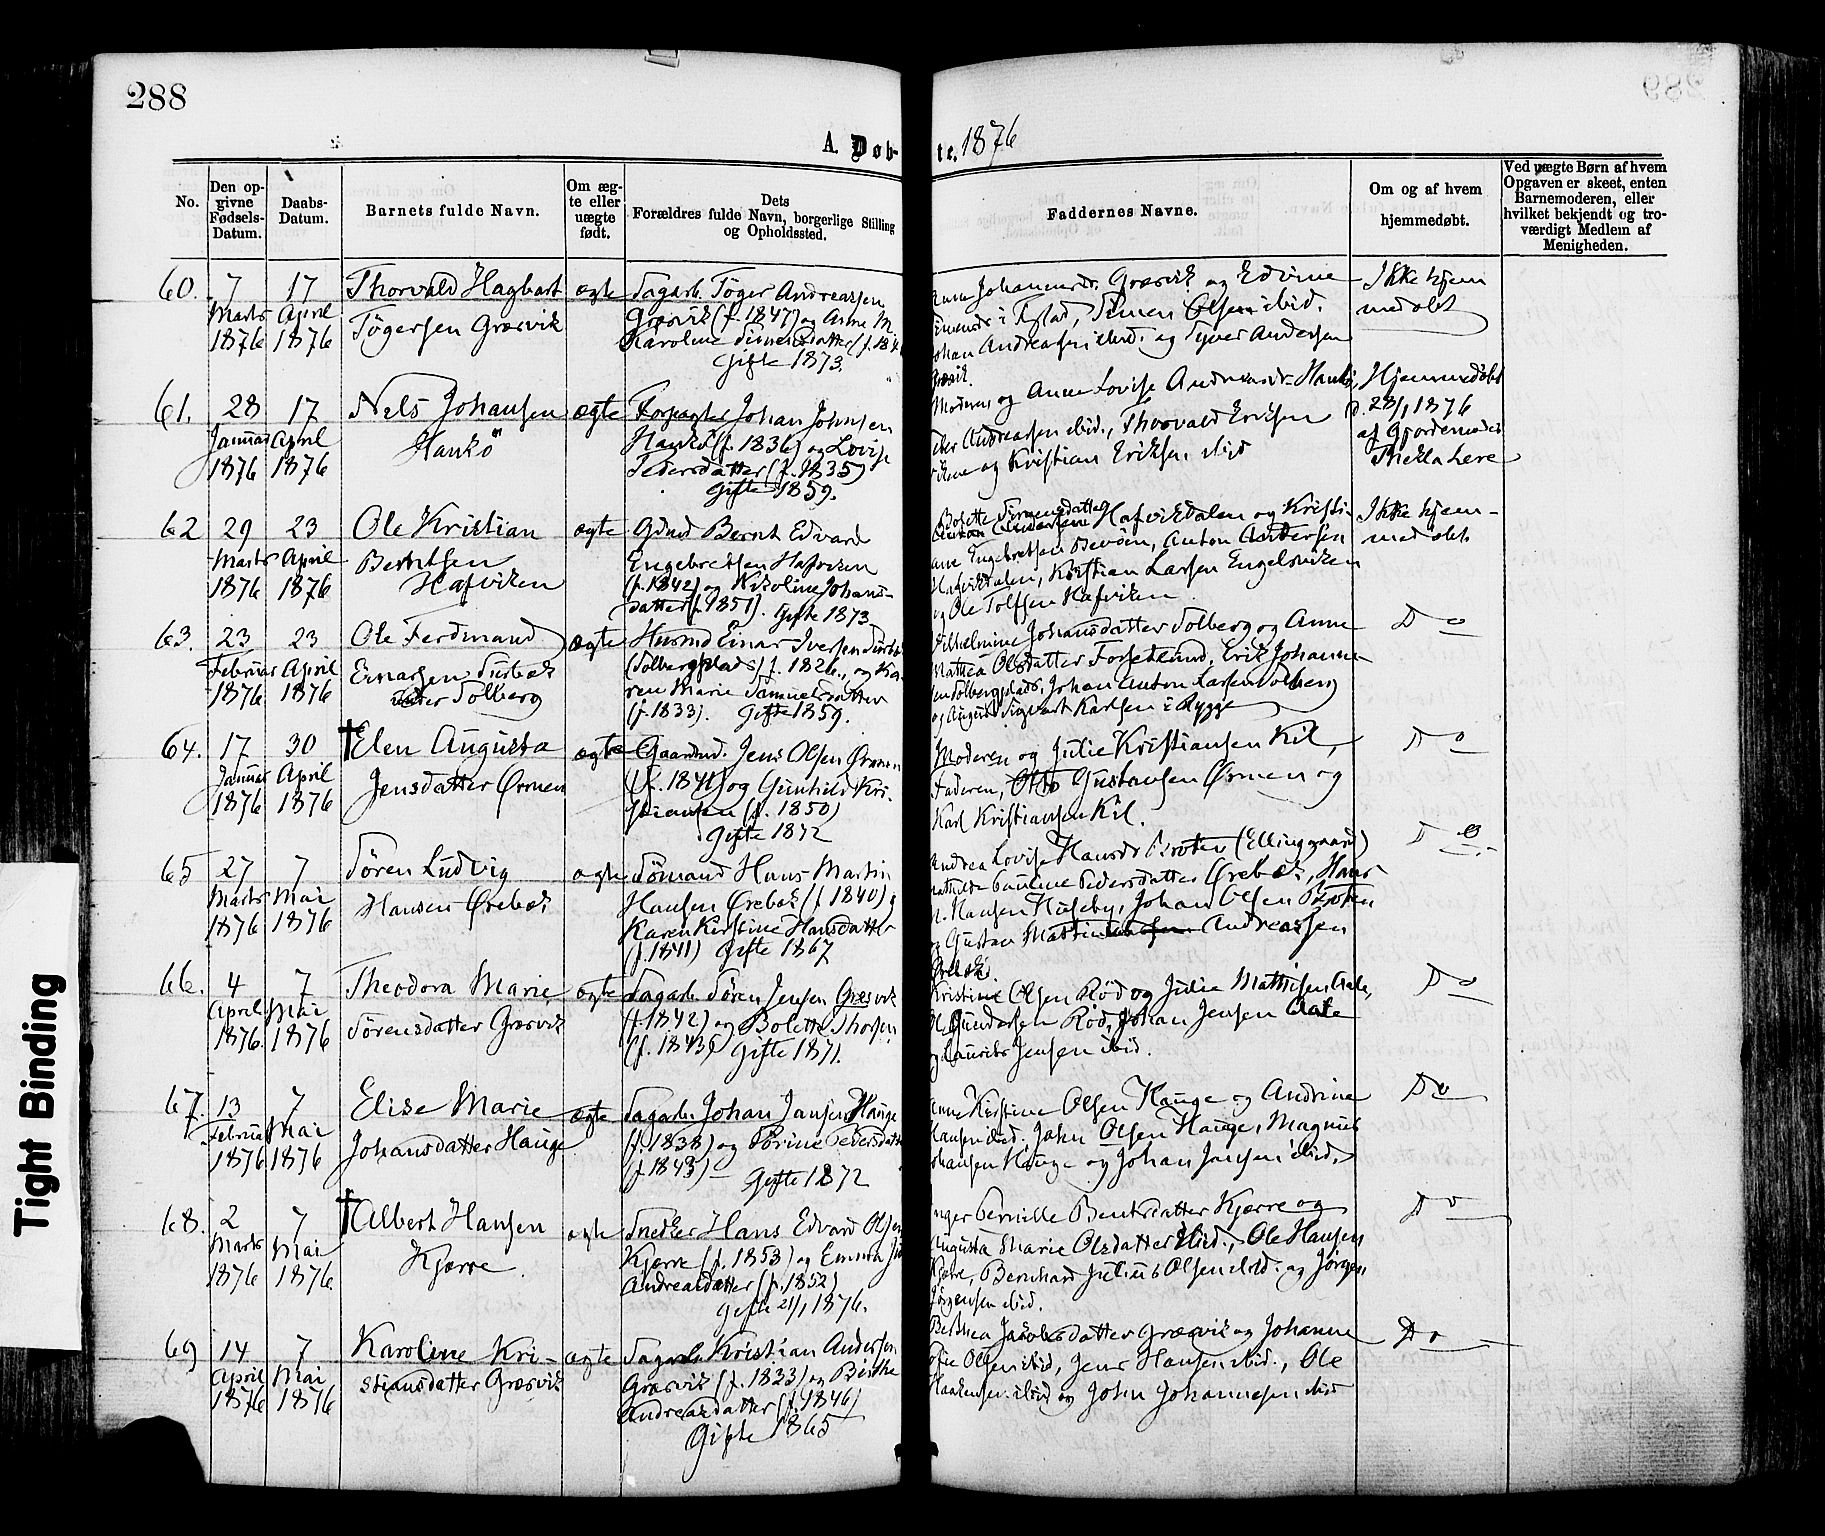 288
A. Døb-
te. 1876
No.
Den op-
givne
Fødsels-
Datum.
Daabs-
Datum.
Barnets fulde Navn.
Om æg-
te eller
uægte
født.
Dets
Forældres fulde Navn, borgerlige Stilling
og Opholdssted.
Faddernes Navne.
Om og af hvem
hjemmedøbt.
Ved uægte Børn af hvem
Opgaven er skeet, enten
Barnemoderen, eller
hvilket bekjendt og tro-
værdigt Medlem af
Menigheden.
60.
7
Marts
1876
17
April
1876
Thorvald Hagbart
Tøgersen Græsvik
ægte
Sagarb. Tøger Andreassen
Græsvik (f. 1847) og Anne M
Karoline Simensdatter (f. 184
Gifte 1873.
Johannesd. Græsvik og Edvine
i Fr.stad, Simen Olsen ibid.
Johan Andreassen ibid. og Syver Andersen
Græsvik.
Ikke hjem
medøbt
61.
28
Januar
1876
17
April
1876
Nels Johansen
Hankø
ægte
Forpagter Johan Johnsen
Hankø (f. 1836) og Lovise
Pedersdatter (f. 1835)
Gifte 1859.
Moderen og Anne Lovise Andreasdr Hankø,
Andreassen ibid., Thorvald Eriksen
og Kristian Eriksen ibid
Hjemmedøbt
d. 28/1 1876
af Gjordemoder
Thekla Lere
62
29
Marts
1876
23
April
1876
Ole Kristian
Berntsen
Hafviken
ægte
Gdmd Bernt Edvard
Engebretsen Hafviken
(f. 1842) og Nikoline Johans-
datter (f. 1851). Gifte 1873
Bolette Simensdatter
Hafvikdalen og Kristi-
ane Engebretsen Bevøen, Anton Andersen
Hafvikdalen, Kristian Larsen Engelsviken
og Ole Tolfsen Hafviken
Ikke hjem-
medøbt
63.
23
Februar
1876
23
April
1876
Ole Ferdinand
Einarsen Surbæk
under Solberg
ægte
Husmd Einar Iversen Surbæk
(Solbergplads) f. 1826., og Ka-
ren Marie Samuelsdatter
(f. 1833). Gifte 1859.
Vilhelmine Johansdatter Solberg og Anne
Mathea Olsdatter Forsetlund, Erik Johanne-
sen Solbergplads, Johan Anton Larsen Solberg
og August Sigvart Karlsen i Rygge
Do
64.
17
Januar
1876
30
April
1876
†Elen Augusta
Jensdatter Ørmen
ægte
Gaardmd. Jens Olsen Ørmen
(f. 1841) og Gunhild Kri-
stiansen (f. 1850)
Gifte 1872
Moderen og Julie Kristiansen Kil,
Faderen, Otto Gustavsen Ørmen og
Karl Kristiansen Kil.
Do
65
27
Marts
1876
7
Mai
1876
Søren Ludvig
Hansen Ørebæk
ægte
Sømand Hans Martin
Hansen Ørebæk (f. 1840) og
Karen Kirstine Hansdatter
(f. 1841) Gifte 1867
Andrea Lovise Hansdr Broten (Ellinggaard)
Mathilde Pauline Pedersdatter Ørebæk, Hans
Hansen Huseby, Johan Olsen Broten
og Gustav Martin Andreassen
Ørebæk.
Do
66.
4
April
1876.
7
Mai
1876
Theodora Marie
Sørensdatter Græsvik
ægte
Sagarb. Søren Jensen Græsvik
(f. 1842) og Bolette Thorsen
(f. 1843) Gifte 1871.
Kristine Olsen Rød og Julie Mathisen Aale,
Gundersen Rød, Johan Jensen Aale
og Laurits Jensen ibid.
Do
67.
13
Februar
1876
7
Mai
1876
Elise Marie
Johansdatter Hauge
ægte
Sagarb. Johan Jansen Hauge
(f. 1838) og Sørine Pedersdatter
(f. 1843) - Gifte 1872
Anne Kirstine Olsen Hauge og Andrine
Hansen ibid. John Olsen Hauge, Magnus
Johansen Hauge og Johan Jansen ibid.
Do
68.
2
Marts
1876
7
Mai
1876
†Albert Hansen
Kjærre
ægte
Snedker Hans Edvard Olsen
Kjærre (f. 1853) og Emma
Andreasdatter (f. 1852)
gifte 21/1 1876.
Inger Pernille Berntsdatter Kjærre og
Augusta Marie Olsdatter ibid., Ole Hansen
Kjærre, Bernhard Julius Olsen ibid. og Jørgen
Jørgensen ibid.
Do
69
14
April
1876
7
Mai
1876
Karoline Kri-
stiansdatter Græsvik
ægte
Sagarb. Kristian Andersen
Græsvik (f. 1833) og Birthe
Andreasdatter (f. 1846)
Gifte 1865
Berthea Jakobsdatter Græsvik og Johanne
Sofie Olsen ibid, Jens Hansen ibid., Ole
Haakensen ibid og John Johannesen ibid
Do
Tight Binding